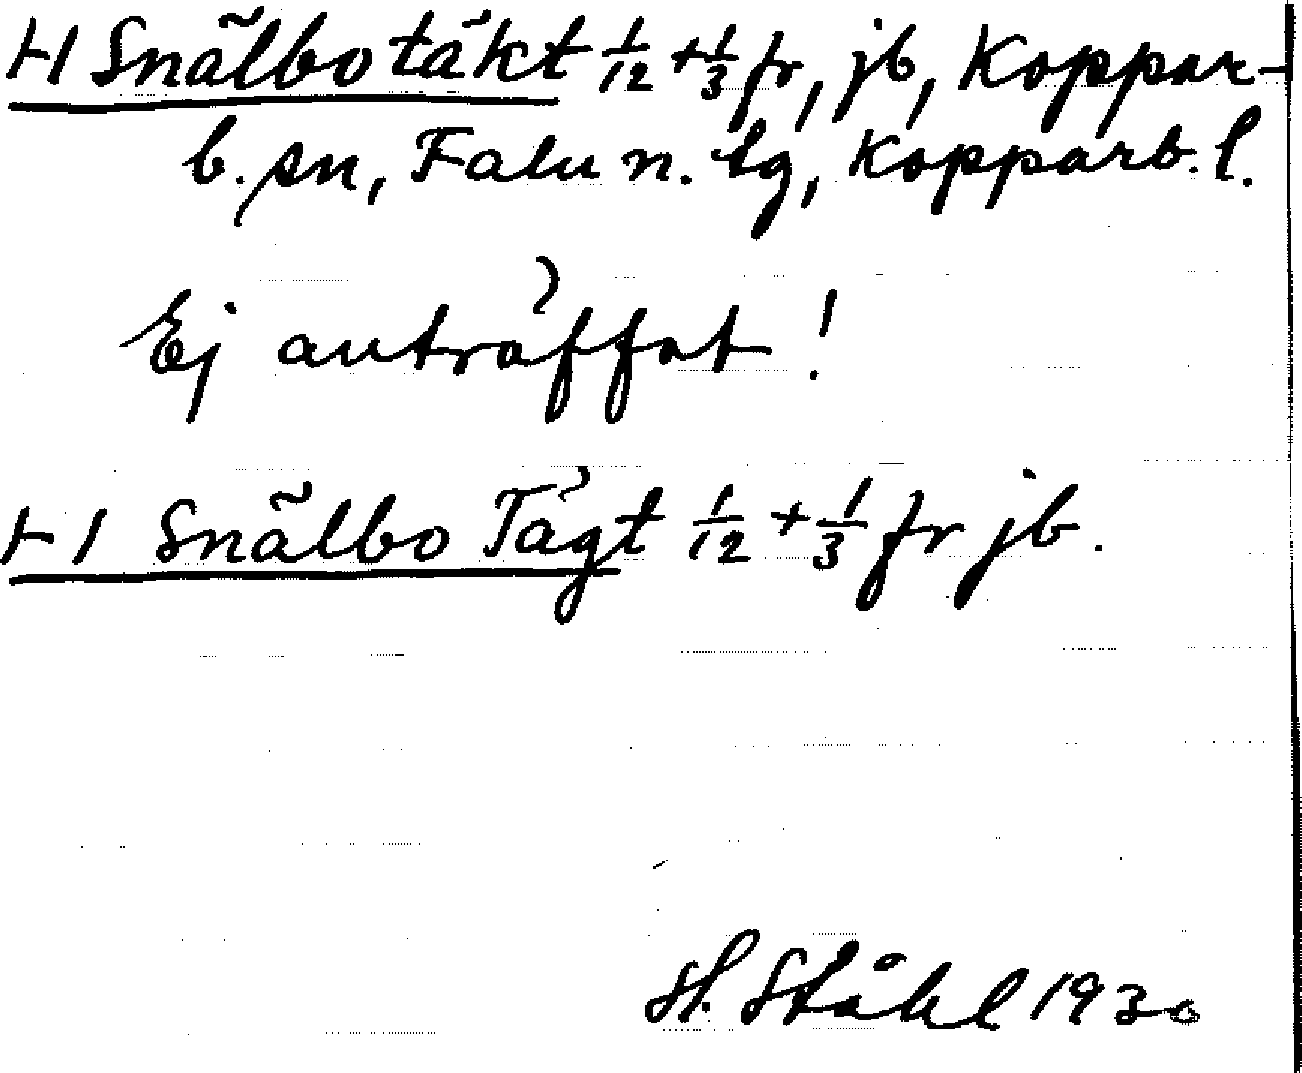 H Snälbotäkt 1/12 + 1/3 fr, jb, Koppar-
b. sn, Falu n. tg, Kopparb. l.
Ej anträffat!
H Snälbo Tägt 1/12 + 1/3 fr jb.
H. Ståhl 1930